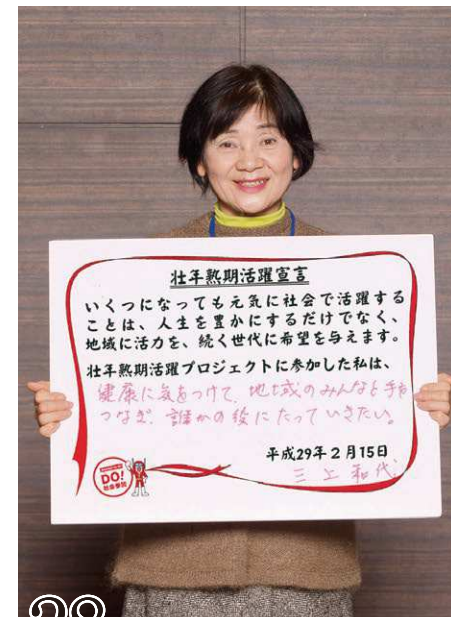 壮年熟期活躍宣言
いくつになっても元気に社会で活躍する
ことは、人生を豊かにするだけでなく、
地域に活力を、続く世代に希望を与えます。
壮年熟期活躍プロジェクトに参加した私は、
健康に気をつけて、地域のみんなと手を
つなぎ、誰かの役にたっていきたい。
平成29年2月15日
三上和代
DO!
社会参加